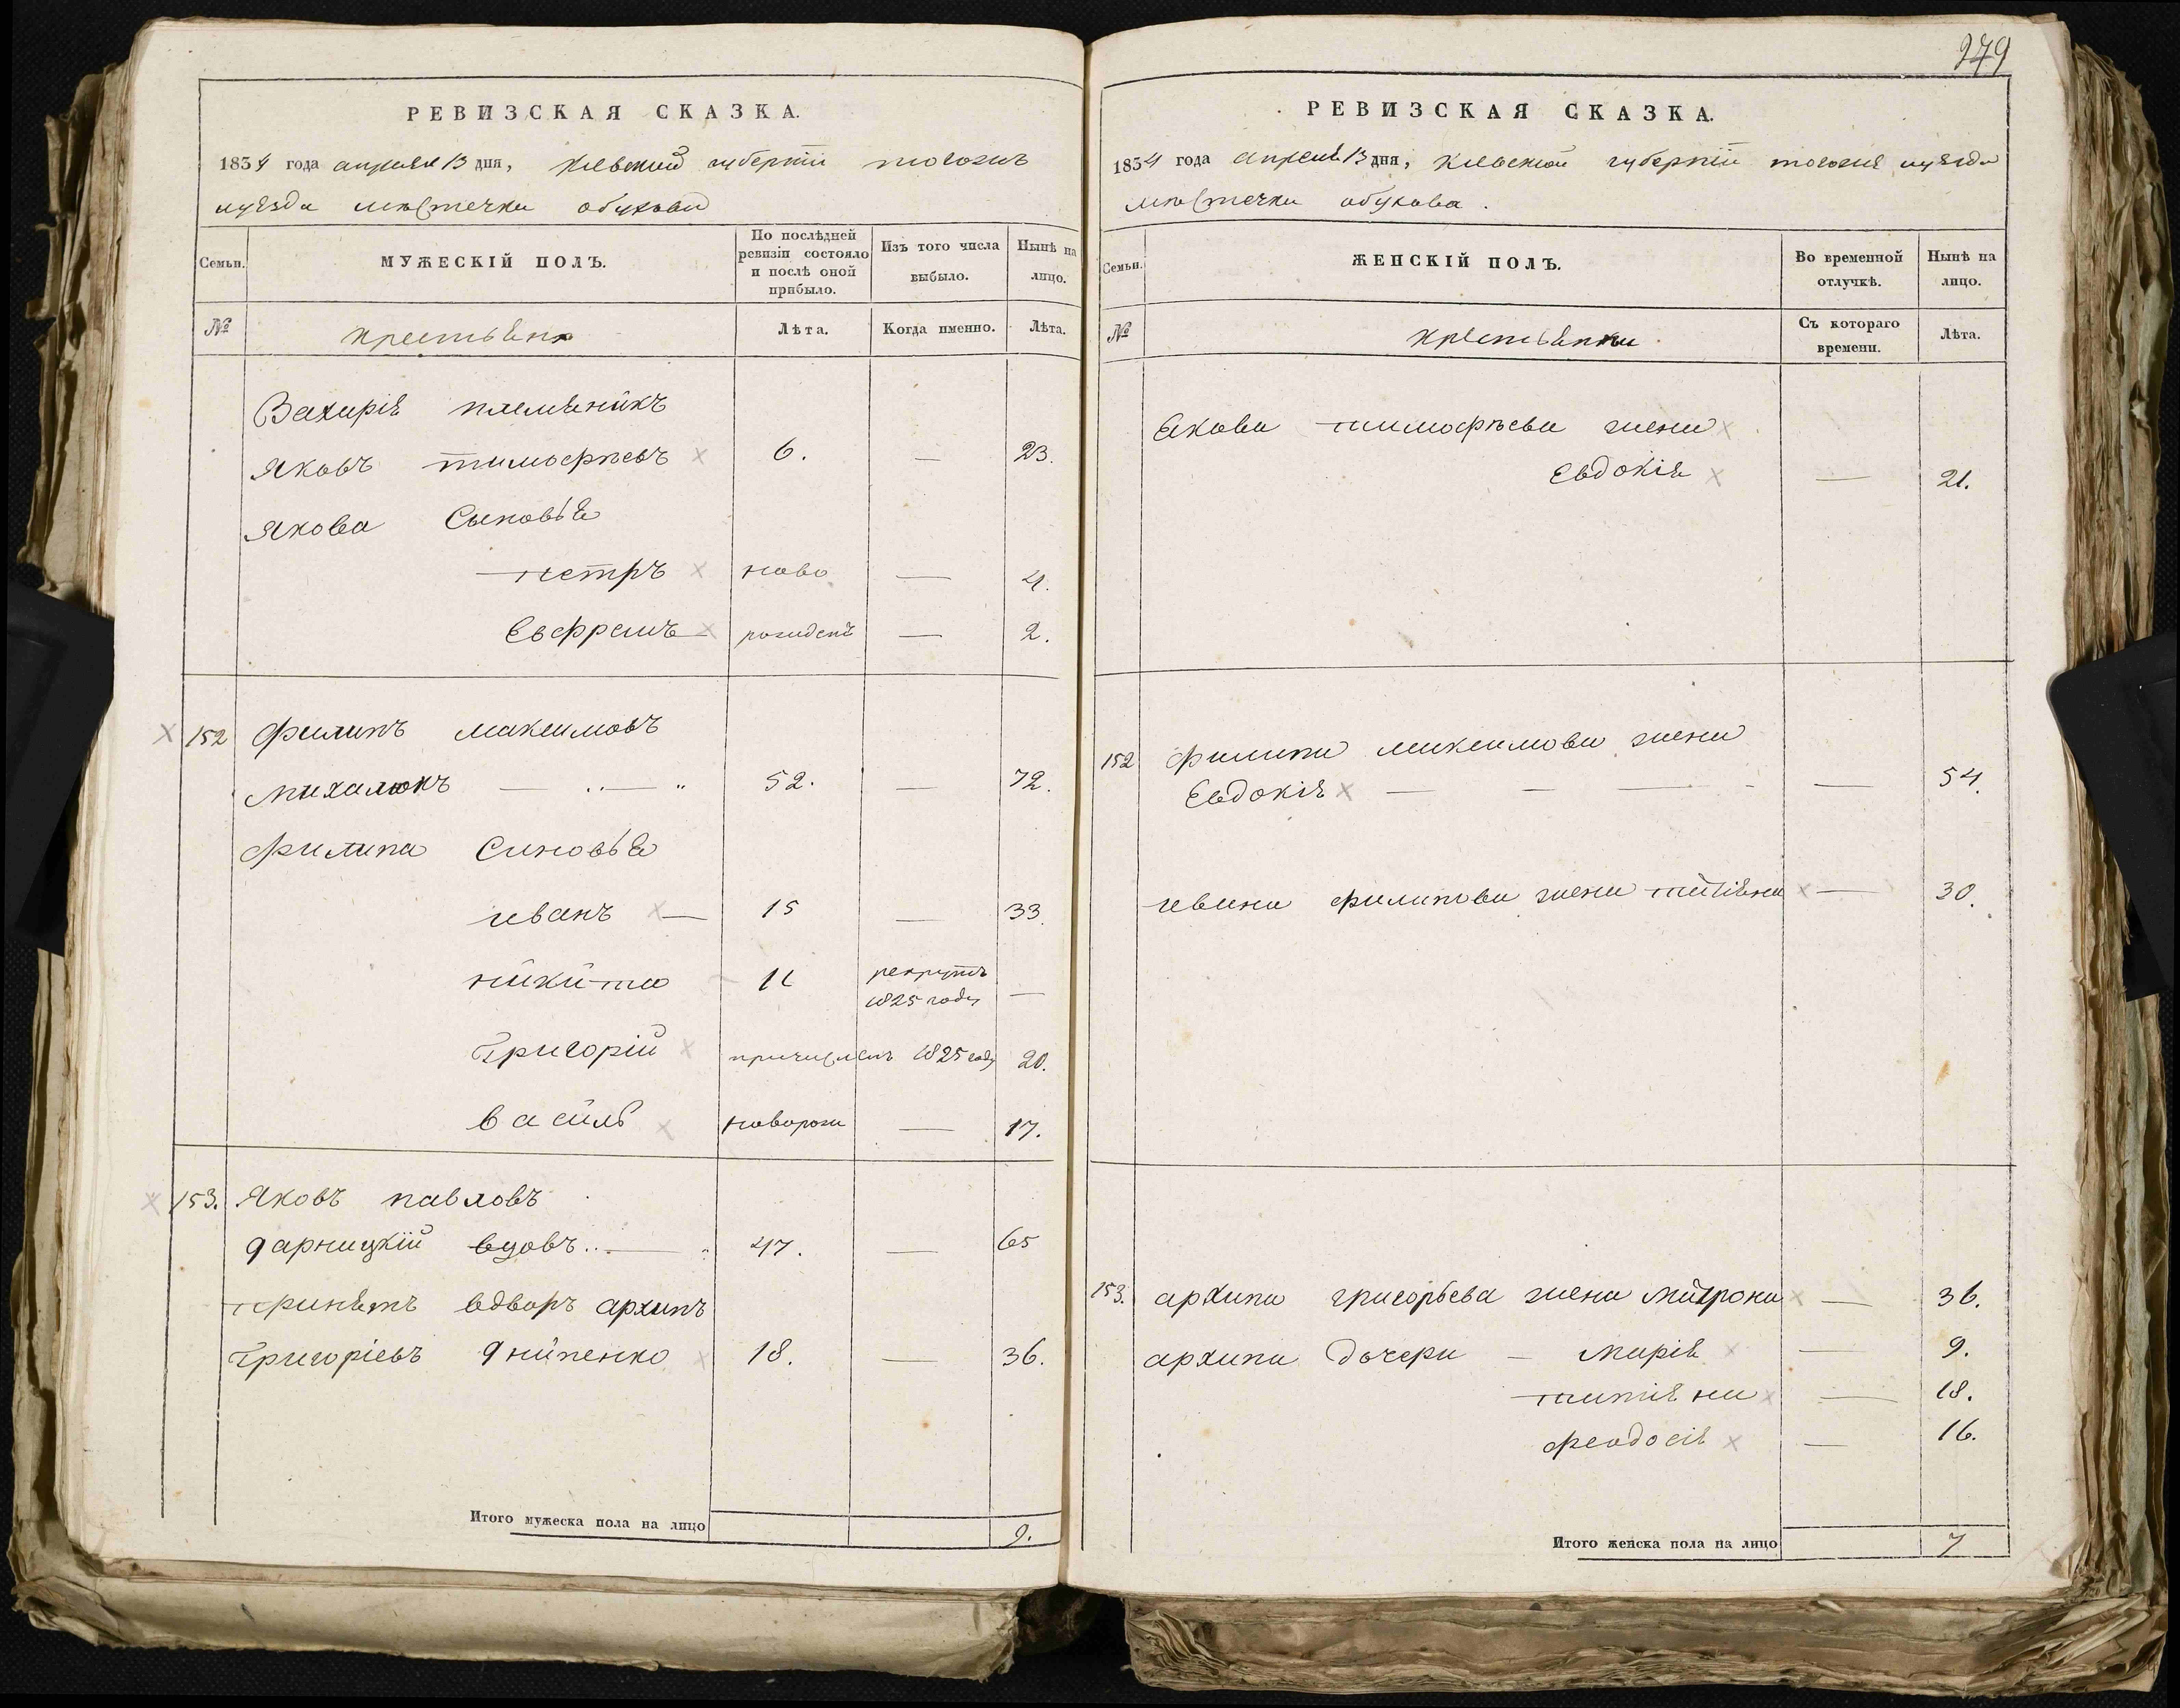 РЕВИЗСКАЯ СКАЗКА.
1834 года апреля 13 дня, Киевской губернiи тогожъ
уѣзда мѣстечка обухова
Семьи.
МУЖЕСКIЙ ПОЛЪ.
По послѣдней ревизiи состояло и послѣ оной прибыло.
Изъ того числа выбыло.
Нынѣ на лицо.
№
крестьяне
Лѣта.
Когда именно.
Лѣта.
Захарiя племѣникъ
Яковъ тимофѣевъ 6. — 23.
Якова Сыновья
петръ ново — 4.
Евфремъ рожденъ — 2.
152 Филипъ максимовъ
михалюкъ 52. — 72.
Филипа Синовья
иванъ — 15 — 33.
никита 11 рекрутъ 1825 году —
Григорiй причисленъ 1825 году 20.
василь новорож — 17.
153. Яковъ павловъ
дарницкiй вдовъ 47. — 65
принятъ вдворъ архипъ
Григорiевъ днипенко 18. — 36.
Итого мужеска пола на лицо 9.
279
РЕВИЗСКАЯ СКАЗКА.
1834 года апреля 13 дня, Киевской губернiи тогожъ уѣзда
мѣстечка обухова.
Семьи.
ЖЕНСКIЙ ПОЛЪ.
Во временной отлучкѣ.
Нынѣ на лицо.
№
крестьянки
Съ котораго времени.
Лѣта.
Якова тимофѣева жена
Евдокiя — 21.
152 Филипа максимова жена
Евдокiя — — — — 54.
ивана филипова жена татiяна — 30.
153. архипа григорьева жена матрона — 36.
архипа дочери — марiя — 9.
татiяна — 18.
феодосiя — 16.
Итого женска пола на лицо 7